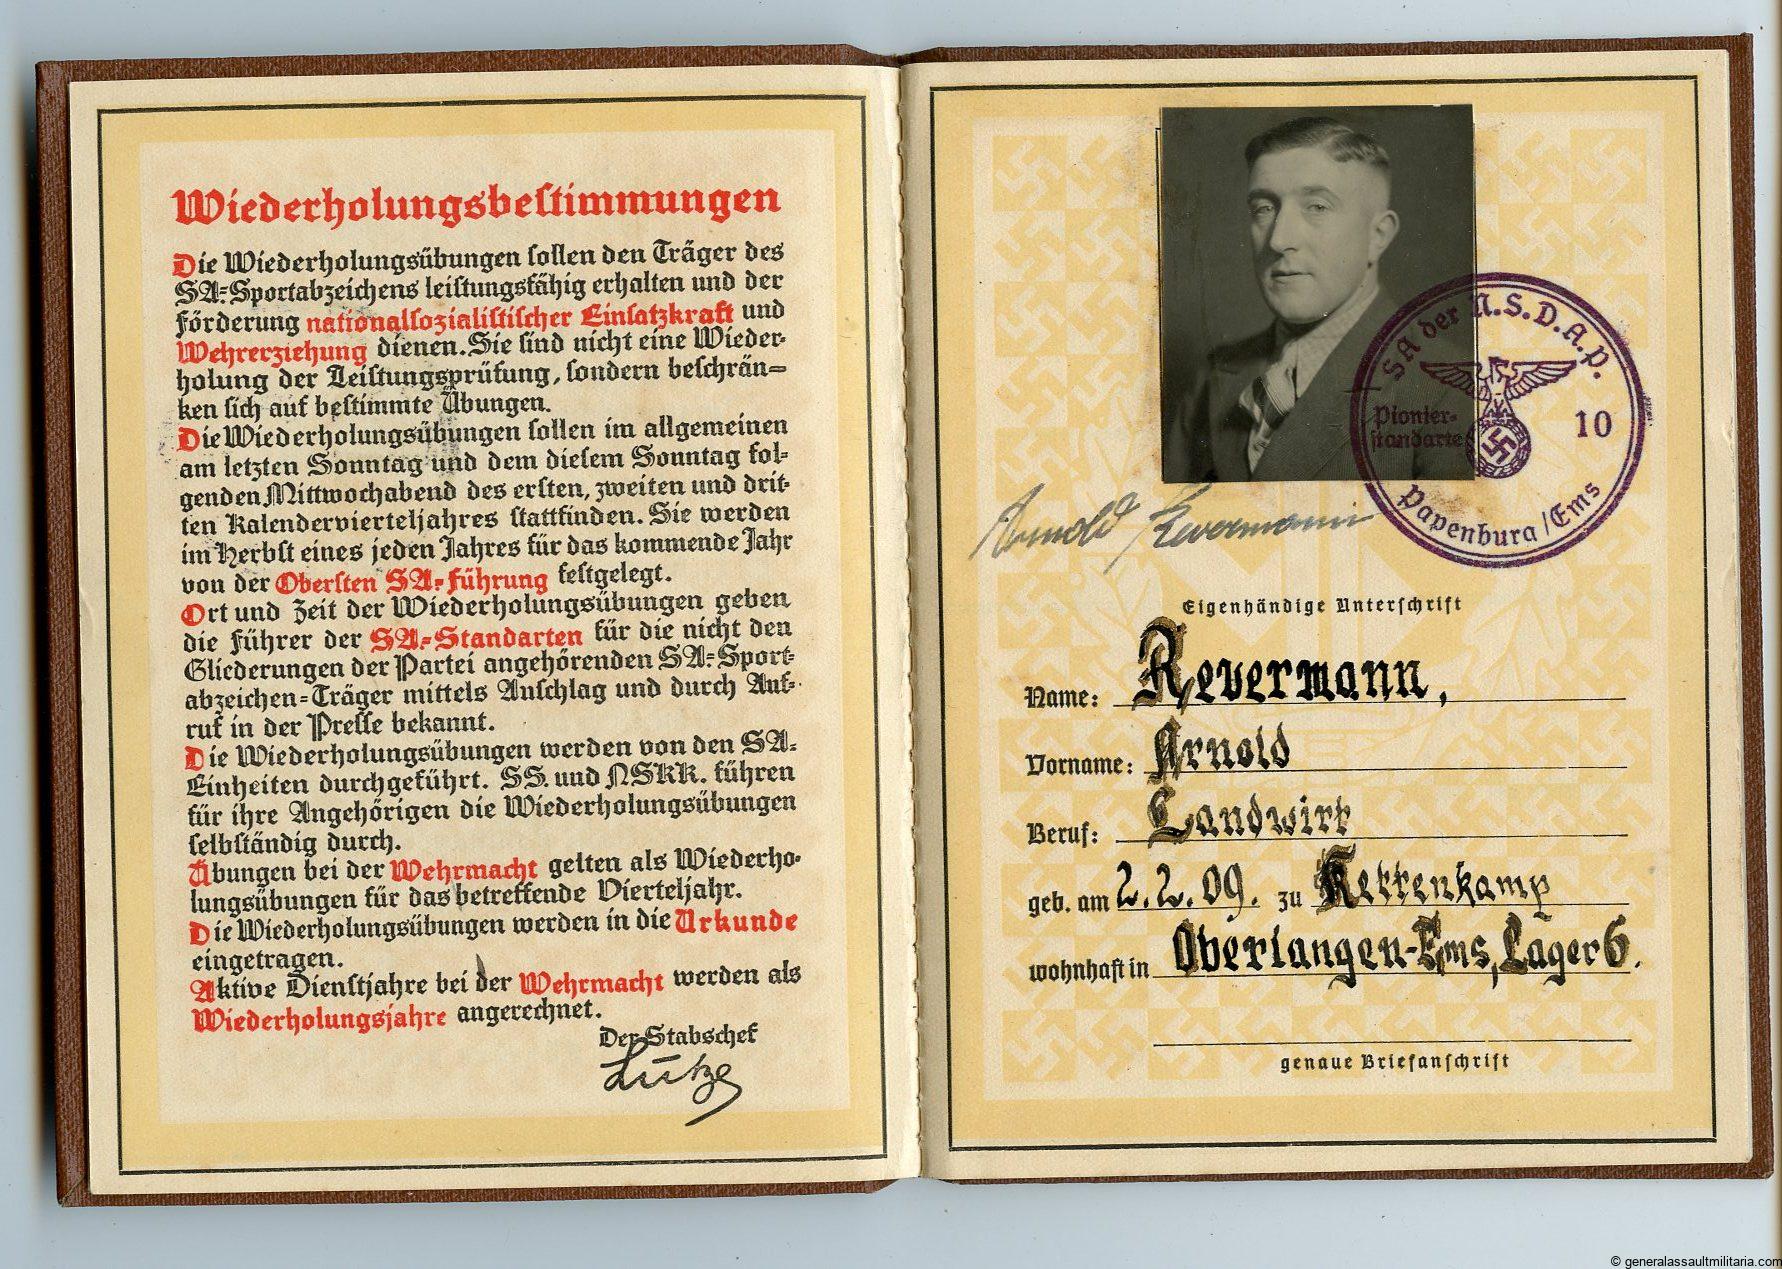 Wiederholungsbestimmungen
Die Wiederholungsübungen sollen den Träger des
SA=Sportabzeichens leistungsfähig erhalten und der
Förderung nationalsozialistischer Einsatzkraft und
Wehrerziehung dienen. Sie sind nicht eine Wieder-
holung der Leistungsprüfung, sondern beschrän=
ken sich auf bestimmte Übungen.
Die Wiederholungsübungen sollen im allgemeinen
am letzten Sonntag und dem diesem Sonntag fol-
genden Mittwochabend des ersten, zweiten und drit-
ten Kalendervierteljahres stattfinden. Sie werden
im Herbst eines jeden Jahres für das kommende Jahr
von der Obersten SA-Führung festgelegt.
Ort und Zeit der Wiederholungsübungen geben
die Führer der SA-Standarten für die nicht den
Gliederungen der Partei angehörenden SA=Sport-
abzeichen=Träger mittels Anschlag und durch Auf-
ruf in der Presse bekannt.
Die Wiederholungsübungen werden von den SA-
Einheiten durchgeführt. SS. und NSKK. führen
für ihre Angehörigen die Wiederholungsübungen
selbständig durch.
Übungen bei der Wehrmacht gelten als Wiederho-
lungsübungen für das betreffende Vierteljahr.
Die Wiederholungsübungen werden in die Urkunde
eingetragen.
Aktive Dienstjahre bei der Wehrmacht werden als
Wiederholungsjahre angerechnet.
Der Stabschef
Lutze
SA der N.S.D.A.P.
Pionier-
standarte
10
Papenburg/Ems
Arnold Revermann
Eigenhändige Unterschrift
Name: Revermann,
Vorname: Arnold
Beruf: Landwirt
geb. am 2.2.09. zu Kettenkamp
wohnhaft in Oberlangen-Ems, Lager 6.
genaue Briefanschrift
© generalassaultmilitaria.com